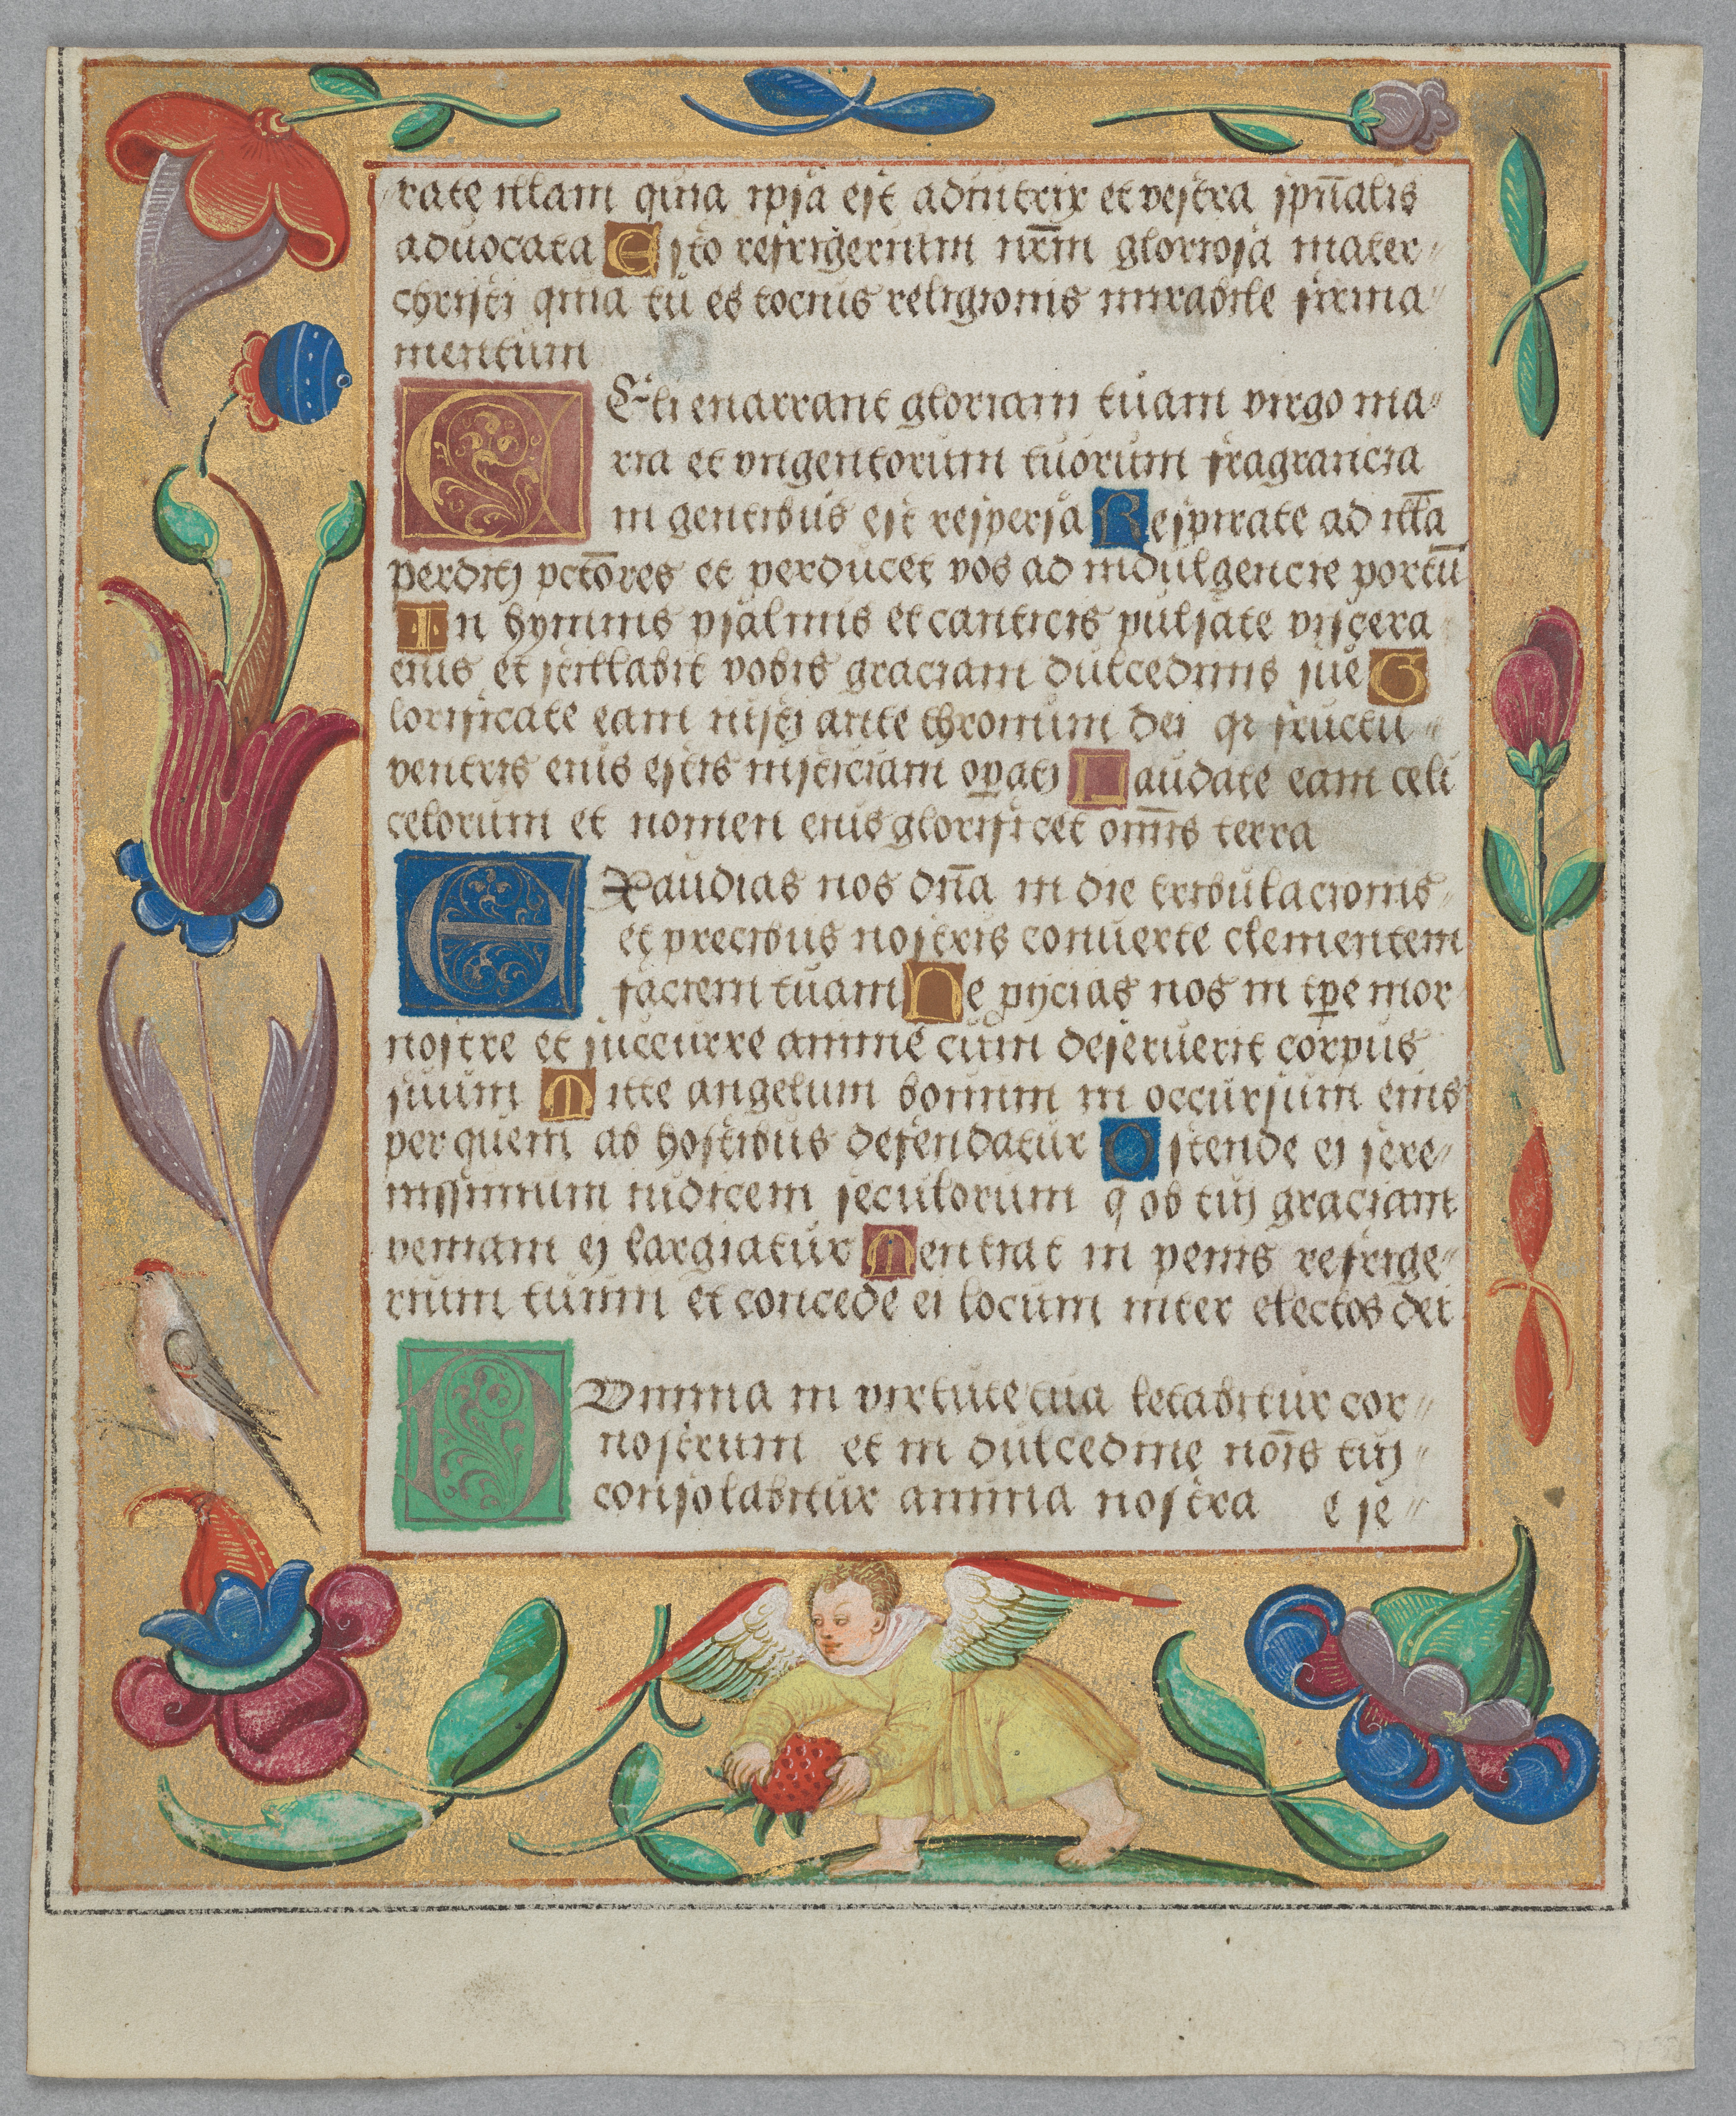 rate illam quia ipsa est adiutrix et vestra spūalis
aduocata Esto refrigerium nr̄m gloriosa mater
christi quia tu es tocius religionis mirabile firma
mentum
Celi enarrant gloriam tuam virgo ma
ria et vngentorum tuorum fragrancia
in gentibus est respersa Respirate ad illā
perditj pctōres et perducet vos ad indulgencie portū
In hymnis psalmis et canticis pulsate viscera
eius et stillabit vobis graciam dulcedinis sue G
lorificate eam iusti ante thronum dei qr fructu
ventris eius estis iusticiam opati Laudate eam celi
celorum et nomen eius glorificet omīs terra
Exaudias nos dn̄a in die tribulacionis
et precibus nostris conuerte clementem
faciem tuam Ne pijcias nos in tpe mor
nostre et succurre anime cum deseruerit corpus
suum Mitte angelum bonum in occursum eius
per quem ab hostibus defendatur Ostende ei sere
nissimum iudicem seculorum q ob tui graciam
veniam ei largiatur Sentiat in penis refrige
rium tuum et concede ei locum inter electos dei
Domina in virtute tua letabitur cor
nostrum et in dulcedine noīs tui
consolabitur anima nostra e se